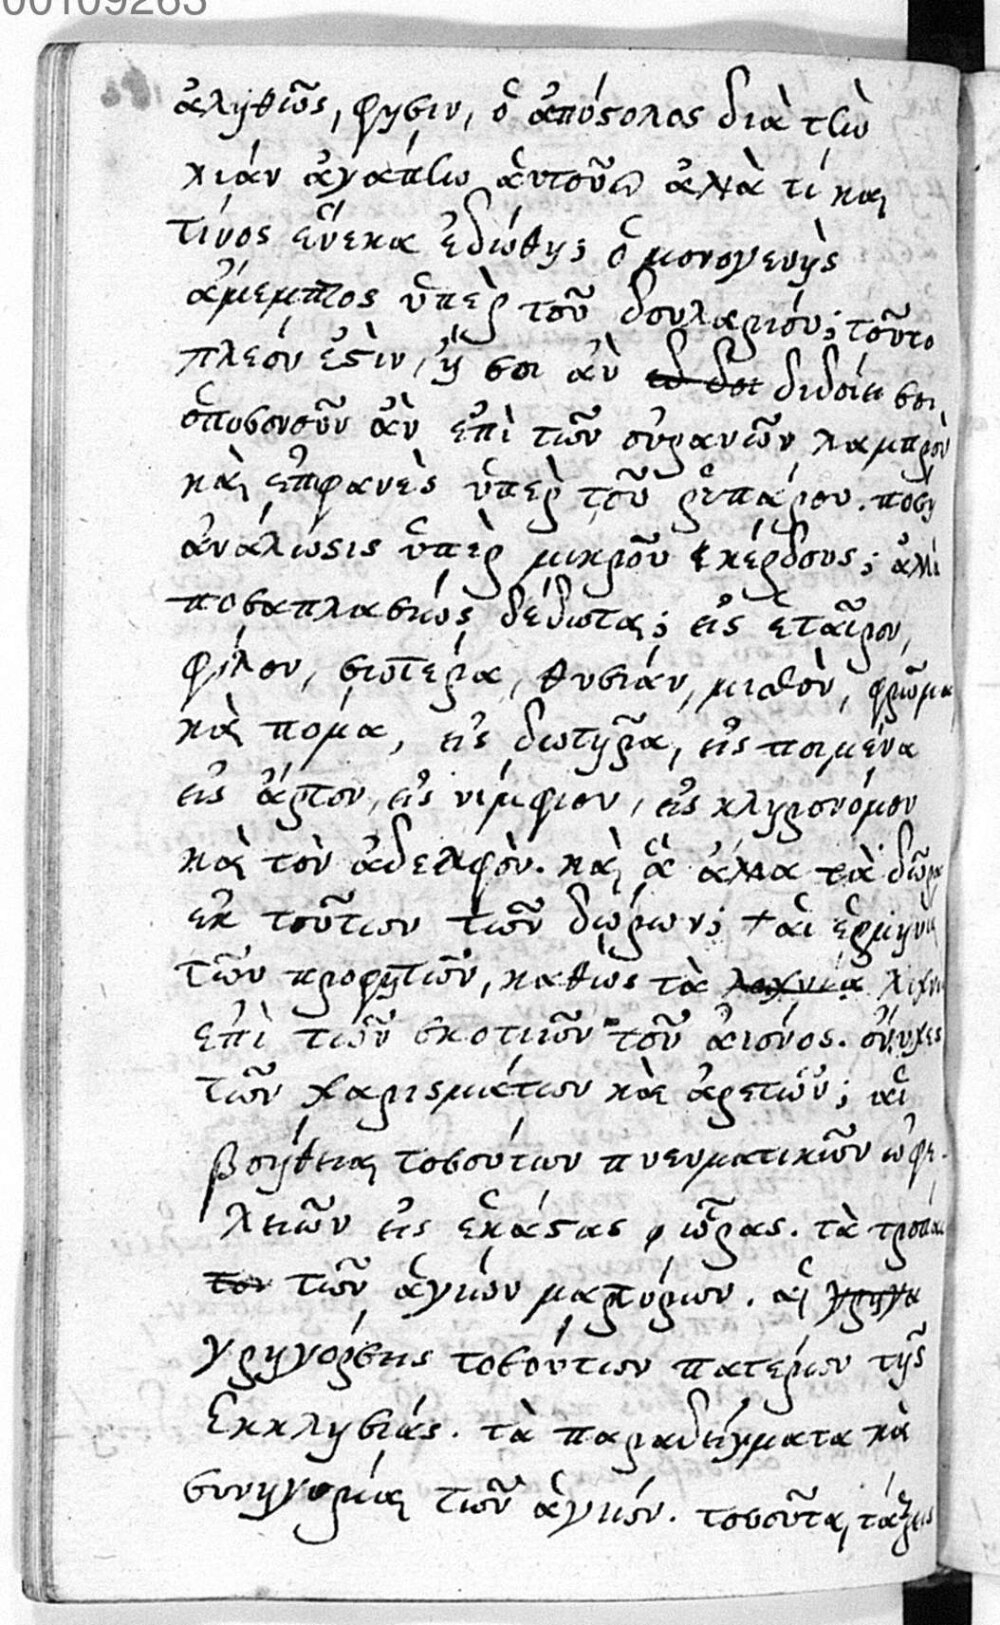 00109263
ἀληθῶς, φησιν, ὁ ἀπόστολος διὰ τὴν
λιάν ἀγάπην ἀυτοῦ ἀλλὰ τί και
τίνος ἕνεκα ἐδώθης ὁ μονογενὴς
ἄμεμπτος ὑπὲρ τοῦ δουλαριόυ; τοῦτο
πλεόν ἐστὶν, ἤ σοι ἀν διδοίη σοι
ὁποσονοῦν ἀν ἐπὶ τῶν ουρανῶν λαμπρὸν
καὶ ἐπιφανὲς ὑπὲρ τοῦ ῥυπάρου. ποση
ἀνάλωσις ὑπὲρ μικροῦ κέρδους; ἀλλὰ
ποσαπλασιώς δέδωται; εἰς ἑταῖρον,
φίλον, σωτέρα, θυσιάν, μισθὸν, βρῶμα
καὶ πομα, εἰς δωτηρα, εἰς ποιμένα
εἰς ἄρτον, εἰς νίμφιον, εἰς κληρονόμον
καὶ τὸν ἀδελφὸν. καὶ ἃ ἄλλα τὰ δῶρα
εκ τοῦτων τῶν δώρων; αἱ ἑρμηνιαι
τῶν προφητῶν, καθὼς τὰ λιχνια
ἐπὶ τῶν σκοτιῶν τοῦ ἀιῶνος.
τῶν χαρισμάτων καὶ ἀρετῶν; αἱ
βοήθειαι τοσούτων πνευματικῶν ὠφε-
λειῶν εἰς ἑκάστας ὥρας. τὰ τροπαια
τῶν ἁγιών μαρτύρων. αἱ
γρηγορσεις τοσούτων πατερων τῆς
Εκκλησιάς. τὰ παραδείγματα καὶ
συνηγορίαι τῶν ἁγιών. τοσοῦται τάξεις